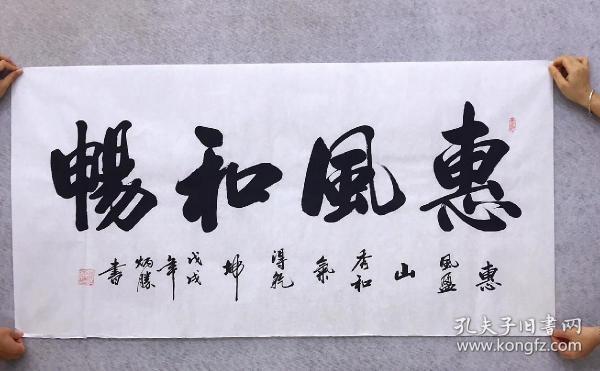 惠風和暢
惠風盈山秀和氣得乾坤戊戌年炳勝書
孔夫子旧书网
www.kongfz.com